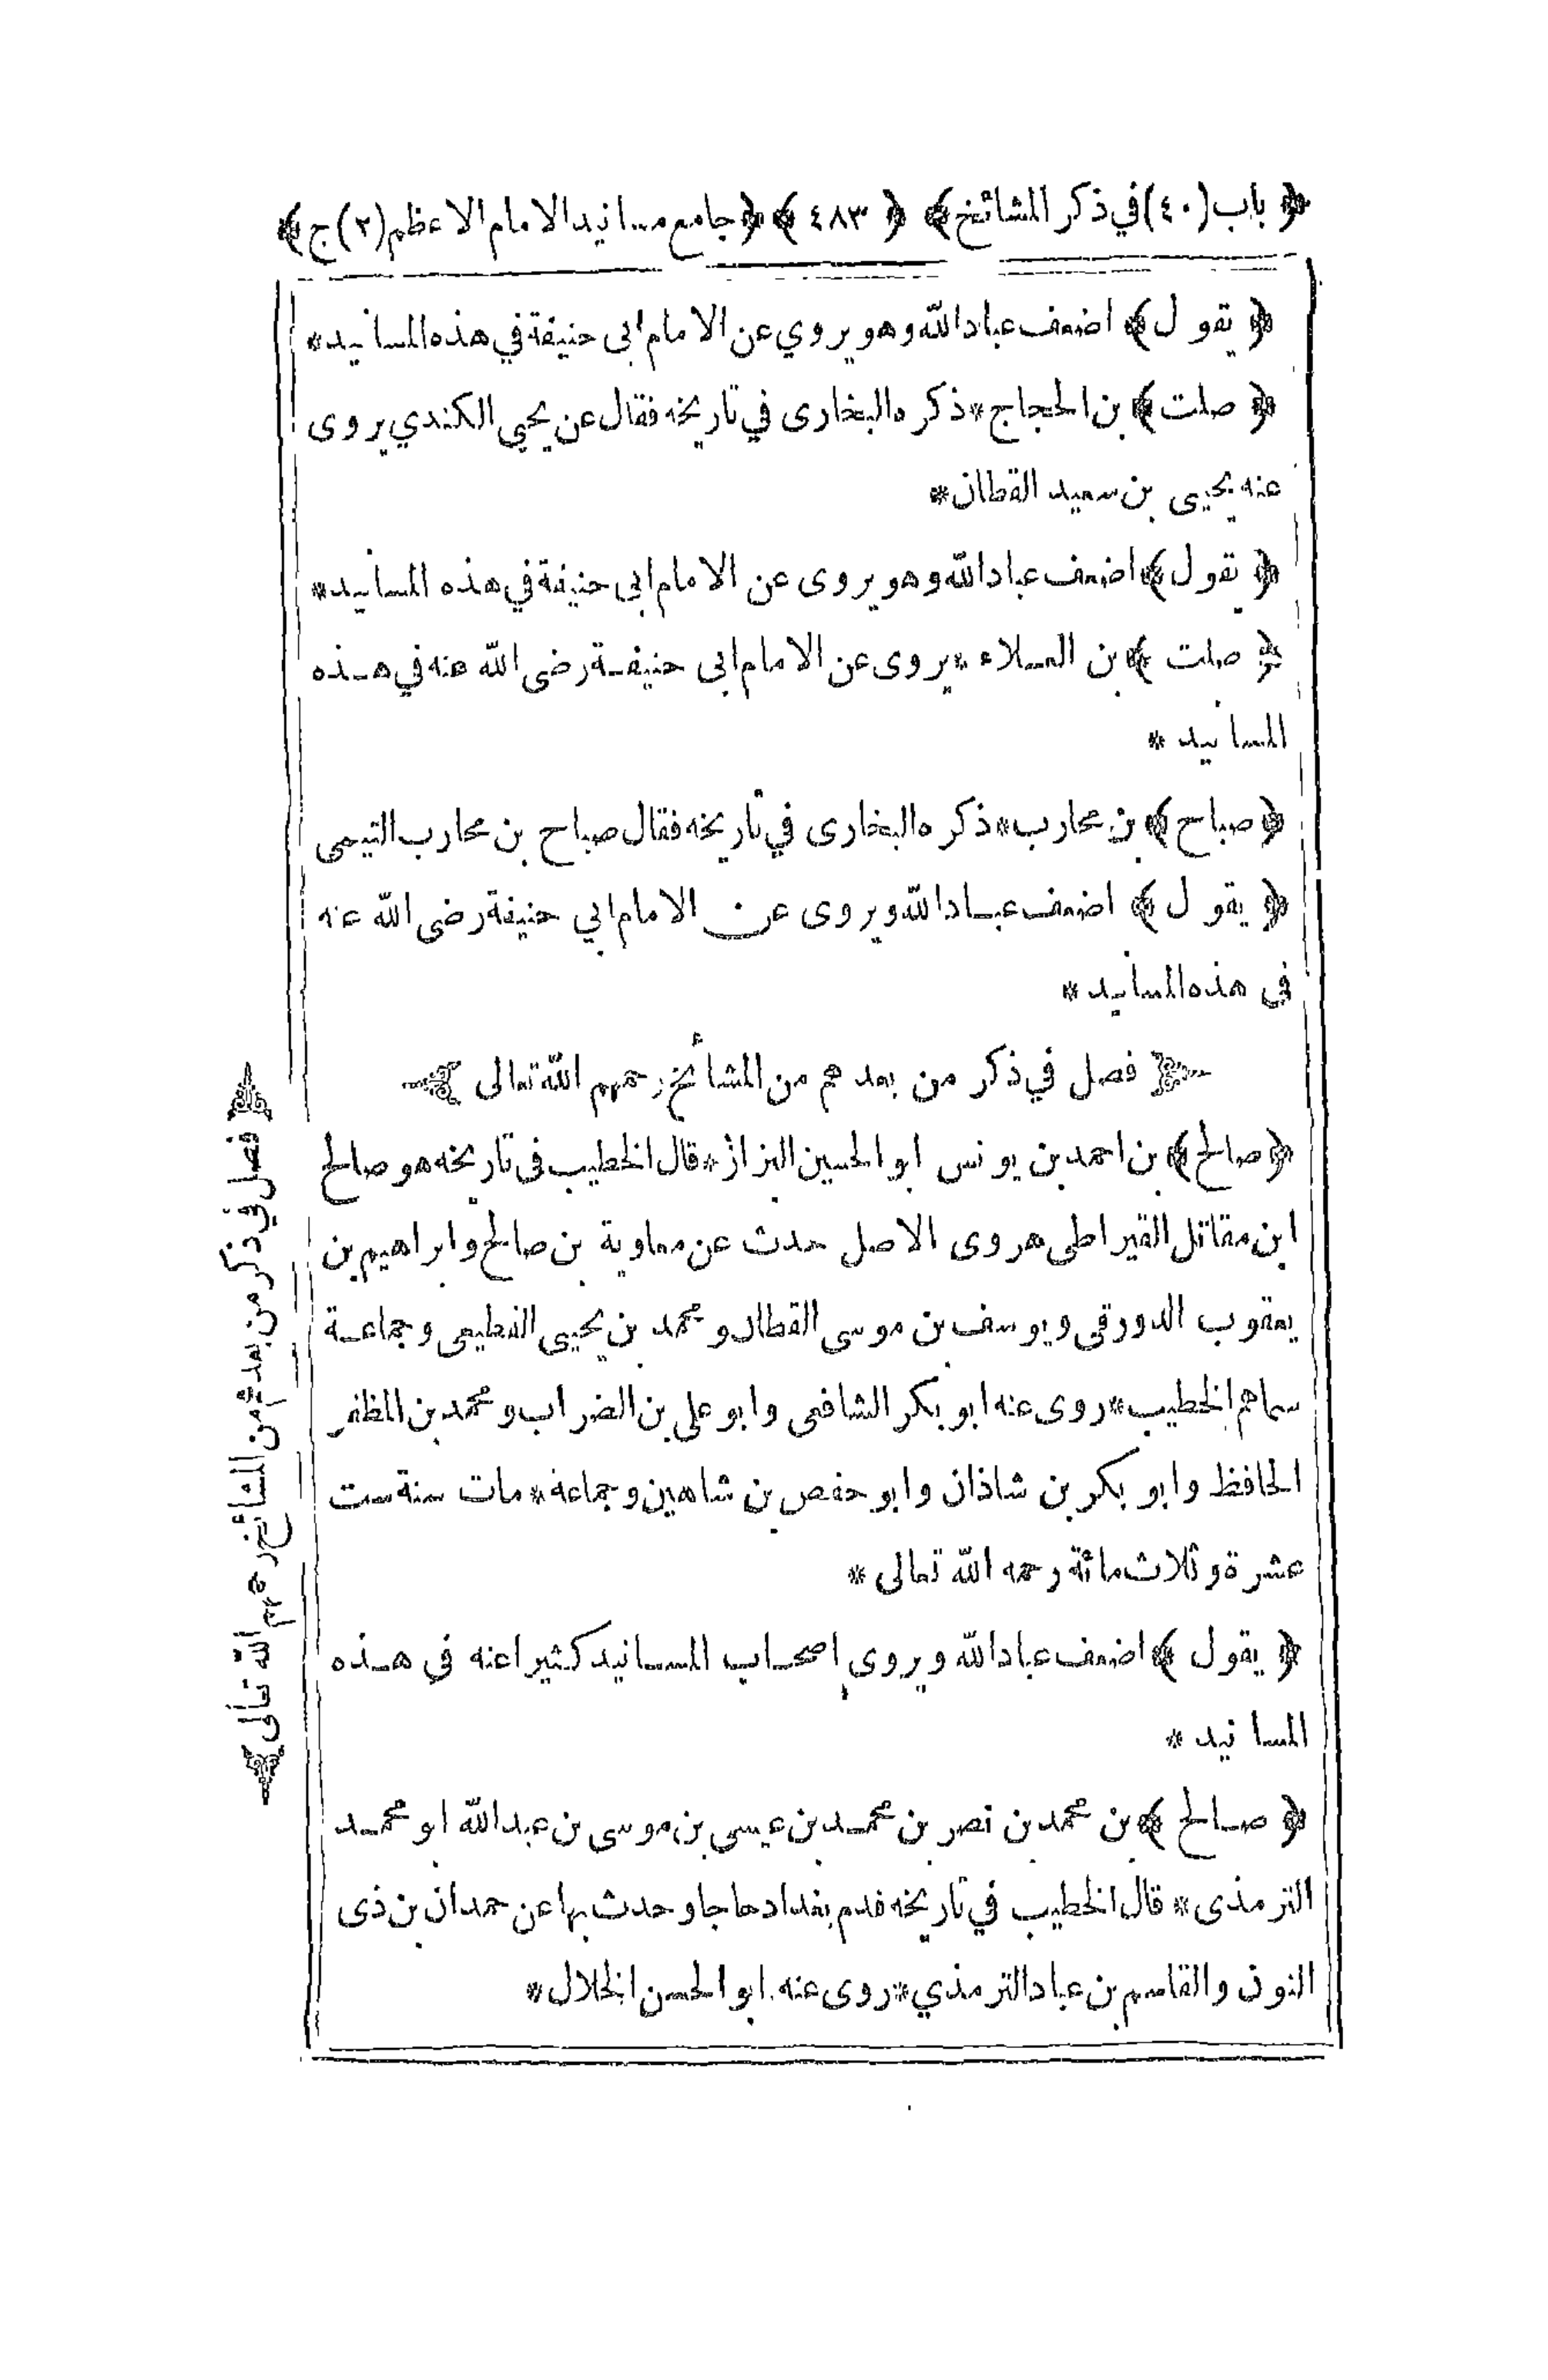 ﴿ باب (٤٠) في ذكر المشائخ ﴾ ﴿ ٤٨٣ ﴾ ﴿ جامع مسانيد الامام الاعظم (٢) ج ﴾
﴿ يقول ﴾ اضعف عباد الله وهو يروي عن الامام ابى حنيفة في هذه المسانيد *
﴿ صلت ﴾ بن الحجاج * ذكره البخارى في تاريخه فقال عن يحيي الكندي يروى
عنه يحيى بن سعيد القطان *
﴿ يقول ﴾ اضعف عباد الله وهو يروى عن الامام ابى حنيفة في هذه المسانيد *
﴿ صلت ﴾ بن العلاء * يروى عن الامام ابى حنيفة رضى الله عنه في هذه
المسانيد *
﴿ صباح ﴾ بن محارب * ذكره البخارى في تاريخه فقال صباح بن محارب التيمى
﴿ يقول ﴾ اضعف عباد الله ويروى عن الامام ابي حنيفة رضى الله عنه
فى هذه المسانيد *
فصل في ذكر من بعدهم من المشائخ رحمهم الله تعالى
﴿ صالح ﴾ بن احمد بن يونس ابو الحسين البزاز * قال الخطيب فى تاريخه هو صالح
ابن مقاتل القيراطى هروى الاصل حدث عن معاوية بن صالح وابراهيم بن
يعقوب الدورقي ويوسف بن موسى القطان ومحمد بن يحيى القطيعى وجماعة
سماهم الخطيب * روى عنه ابو بكر الشافعى وابو على بن الضراب ومحمد بن المظفر
الحافظ وابو بكر بن شاذان وابو حفص بن شاهين وجماعة * مات سنة ست
عشرة وثلاث مائة رحمه الله تعالى *
﴿ يقول ﴾ اضعف عباد الله ويروى اصحاب المسانيد كثيرا عنه في هذه
المسانيد *
﴿ صالح ﴾ بن محمد بن نصر بن محمد بن عيسى بن موسى بن عبد الله ابو محمد
الترمذى * قال الخطيب في تاريخه قدم بغداد حاجا وحدث بها عن حمدان بن ذى
النون والقاسم بن عباد الترمذي * روى عنه ابو الحسن الخلال *
فصل في ذكر من بعدهم من المشائخ رحمهم الله تعالى